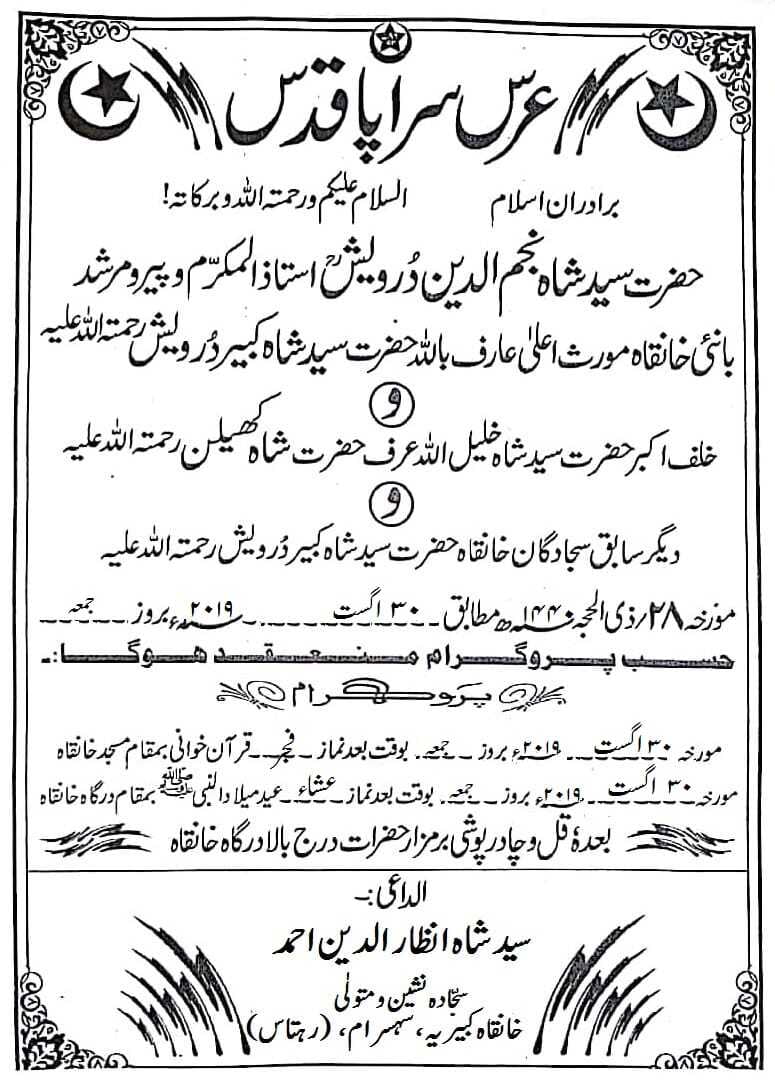 عرس سراپا قدس
برادران اسلام السلام علیکم ورحمتہ اللہ وبرکاتہ!
حضرت سید شاہ نجم الدین دُرویشؒ استاذ المکرّم و پیر و مرشد
بانئی خانقاہ مورث اعلیٰ عارف باللہ حضرت سید شاہ کبیر دُرویش رحمتہ اللہ علیہ
و
خلف اکبر حضرت سید شاہ خلیل اللہ عرف حضرت شاہ کھیلن رحمتہ اللہ علیہ
و
دیگر سابق سجادگان خانقاہ حضرت سید شاہ کبیر دُرویش رحمتہ اللہ علیہ
مورخہ ۲۸؍ذی الحجہ ۱۴۴۰ھ مطابق ۳۰ اگست ۲۰۱۹ء بروز جمعہ
حسب پروگرام منعقد ہوگا:۔
پروگرام
مورخہ ۳۰ اگست ۲۰۱۹ء بروز جمعہ بوقت بعد نماز فجر قرآن خوانی بمقام مسجد خانقاہ
مورخہ ۳۰ اگست ۲۰۱۹ء بروز جمعہ بوقت بعد نماز عشاء عید میلاد النبی ﷺ بمقام درگاہ خانقاہ
بعدہٗ قل و چادر پوشی بر مزار حضرات درج بالا درگاہ خانقاہ
الداعی:۔
سید شاہ انظار الدین احمد
سجّادہ نشین و متولی
خانقاہ کبیریہ، سہسرام، (رہتاس)